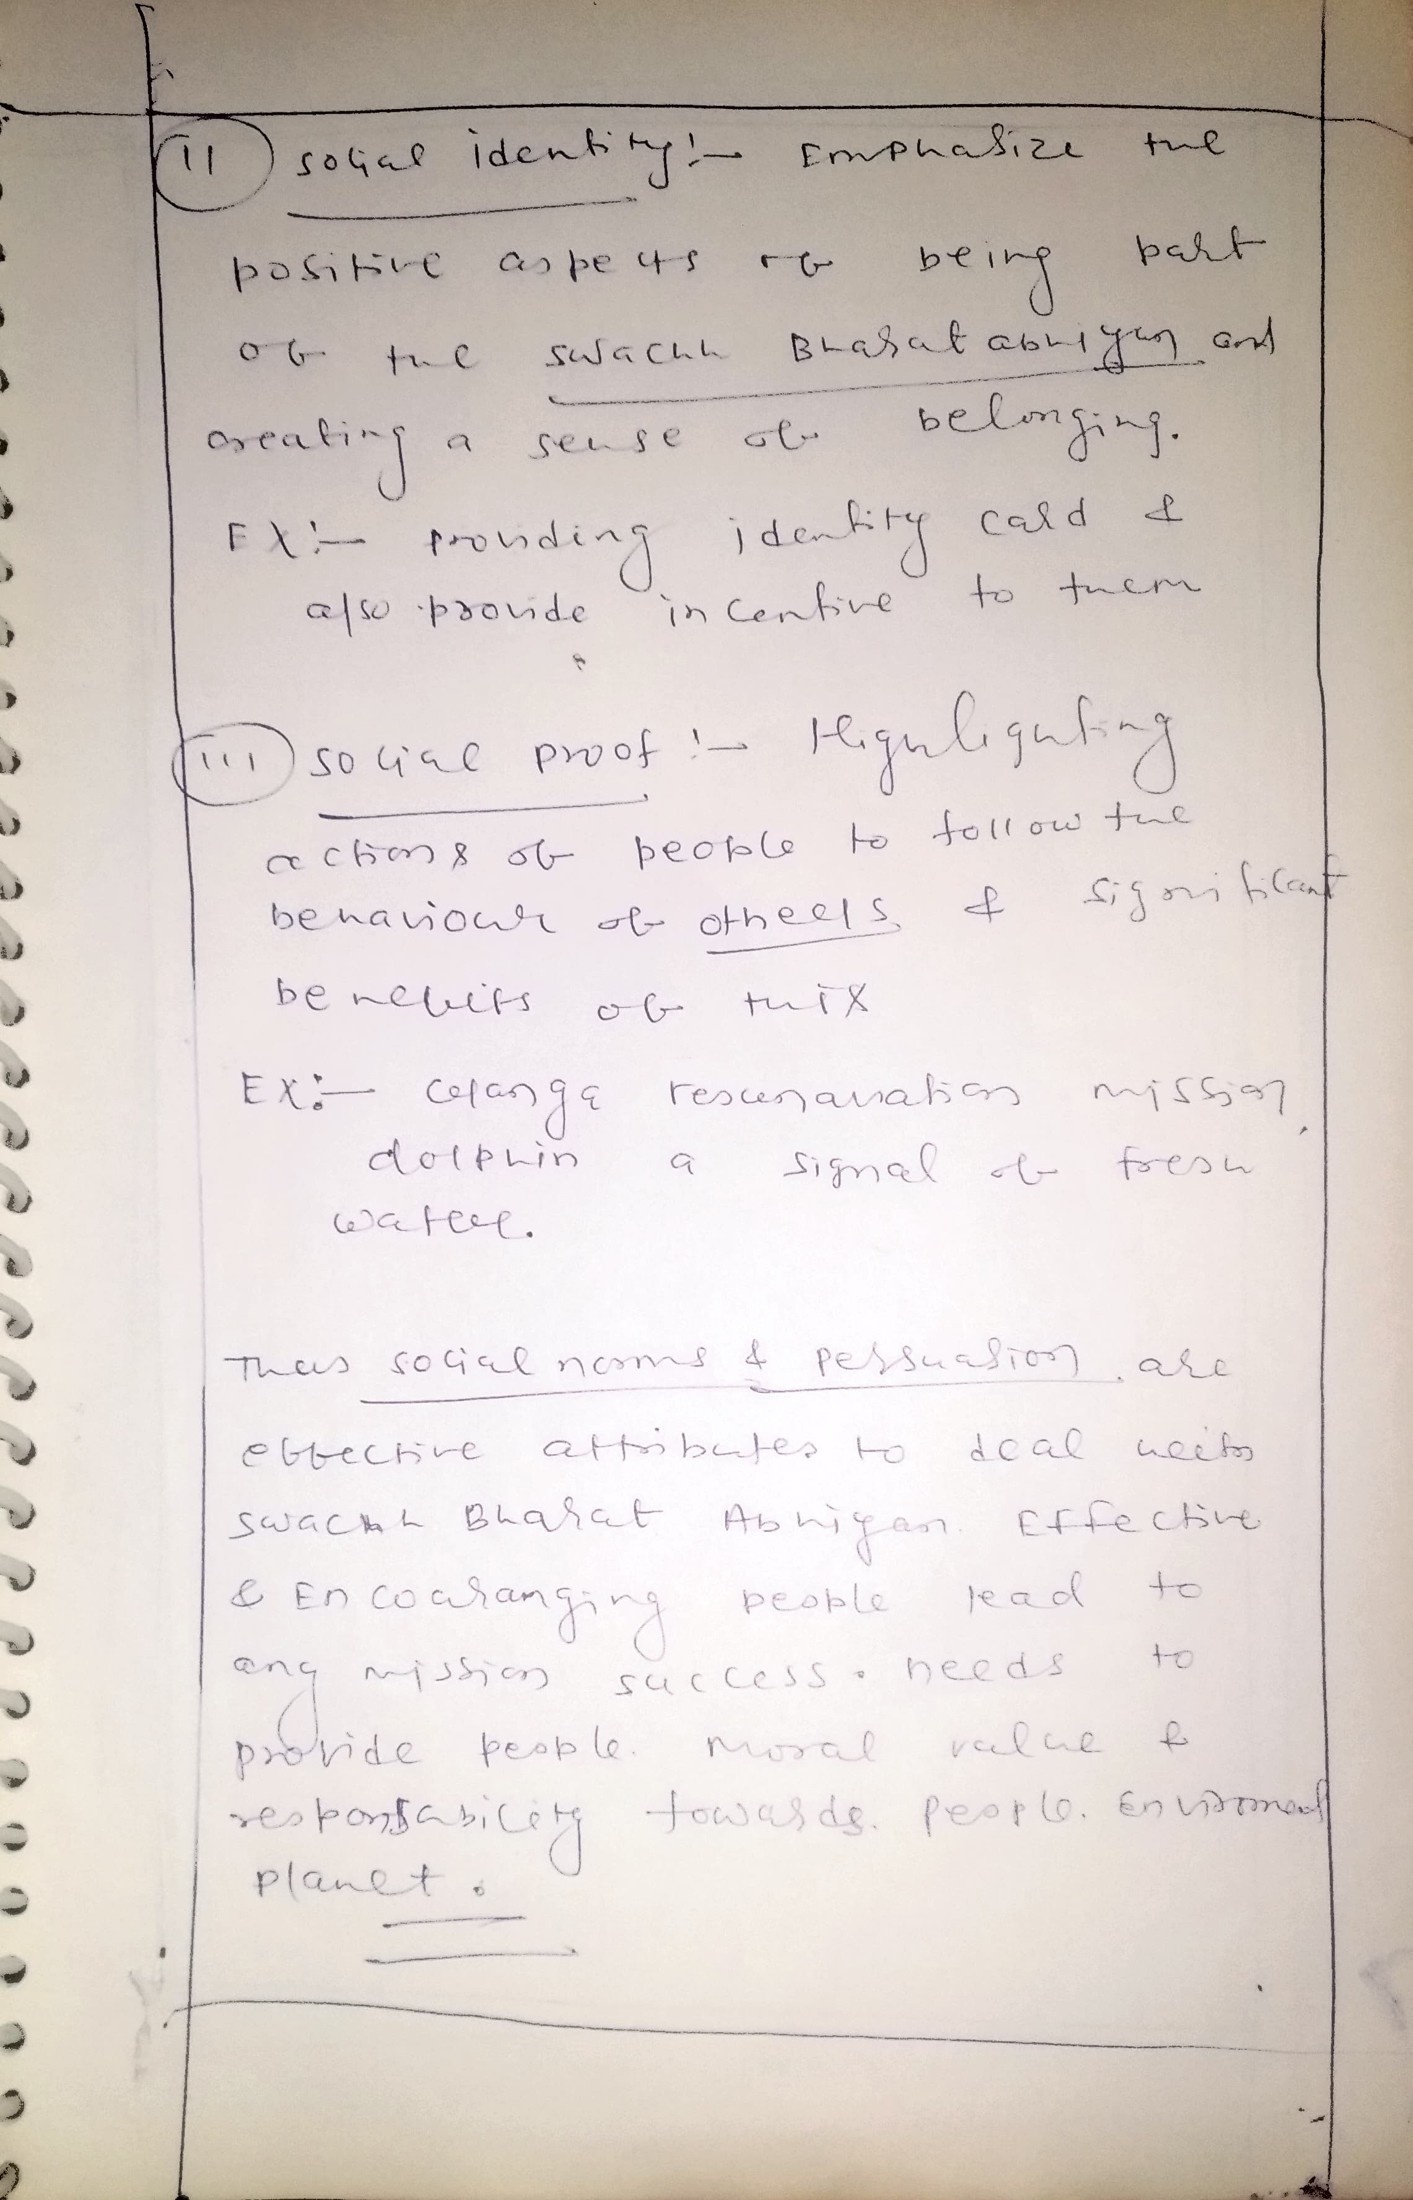 (ii) social identity :- Emphasize the
positive aspects of being part
of the swachh Bharat abhiyan and
creating a sense of belonging.
EX:- providing identity card &
also provide incentive to them
(iii) social proof :- Highlighting
actions of people to follow the
behaviour of others & significant
benefits of this
EX:- Ganga mission,
dolphin a signal of fresh
water.
Thus social norms & persuasion are
effective attributes to deal with
swachh Bharat Abhiyan. Effective
& Encouranging people lead to
any mission success. needs to
provide people. moral value &
responsability towards. people. Enviroment
planet.